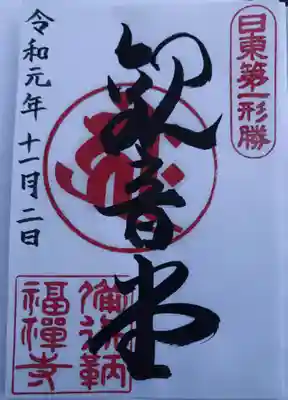 日東第一形勝
観音堂
令和元年 十一月二日
備後鞆
福禪寺